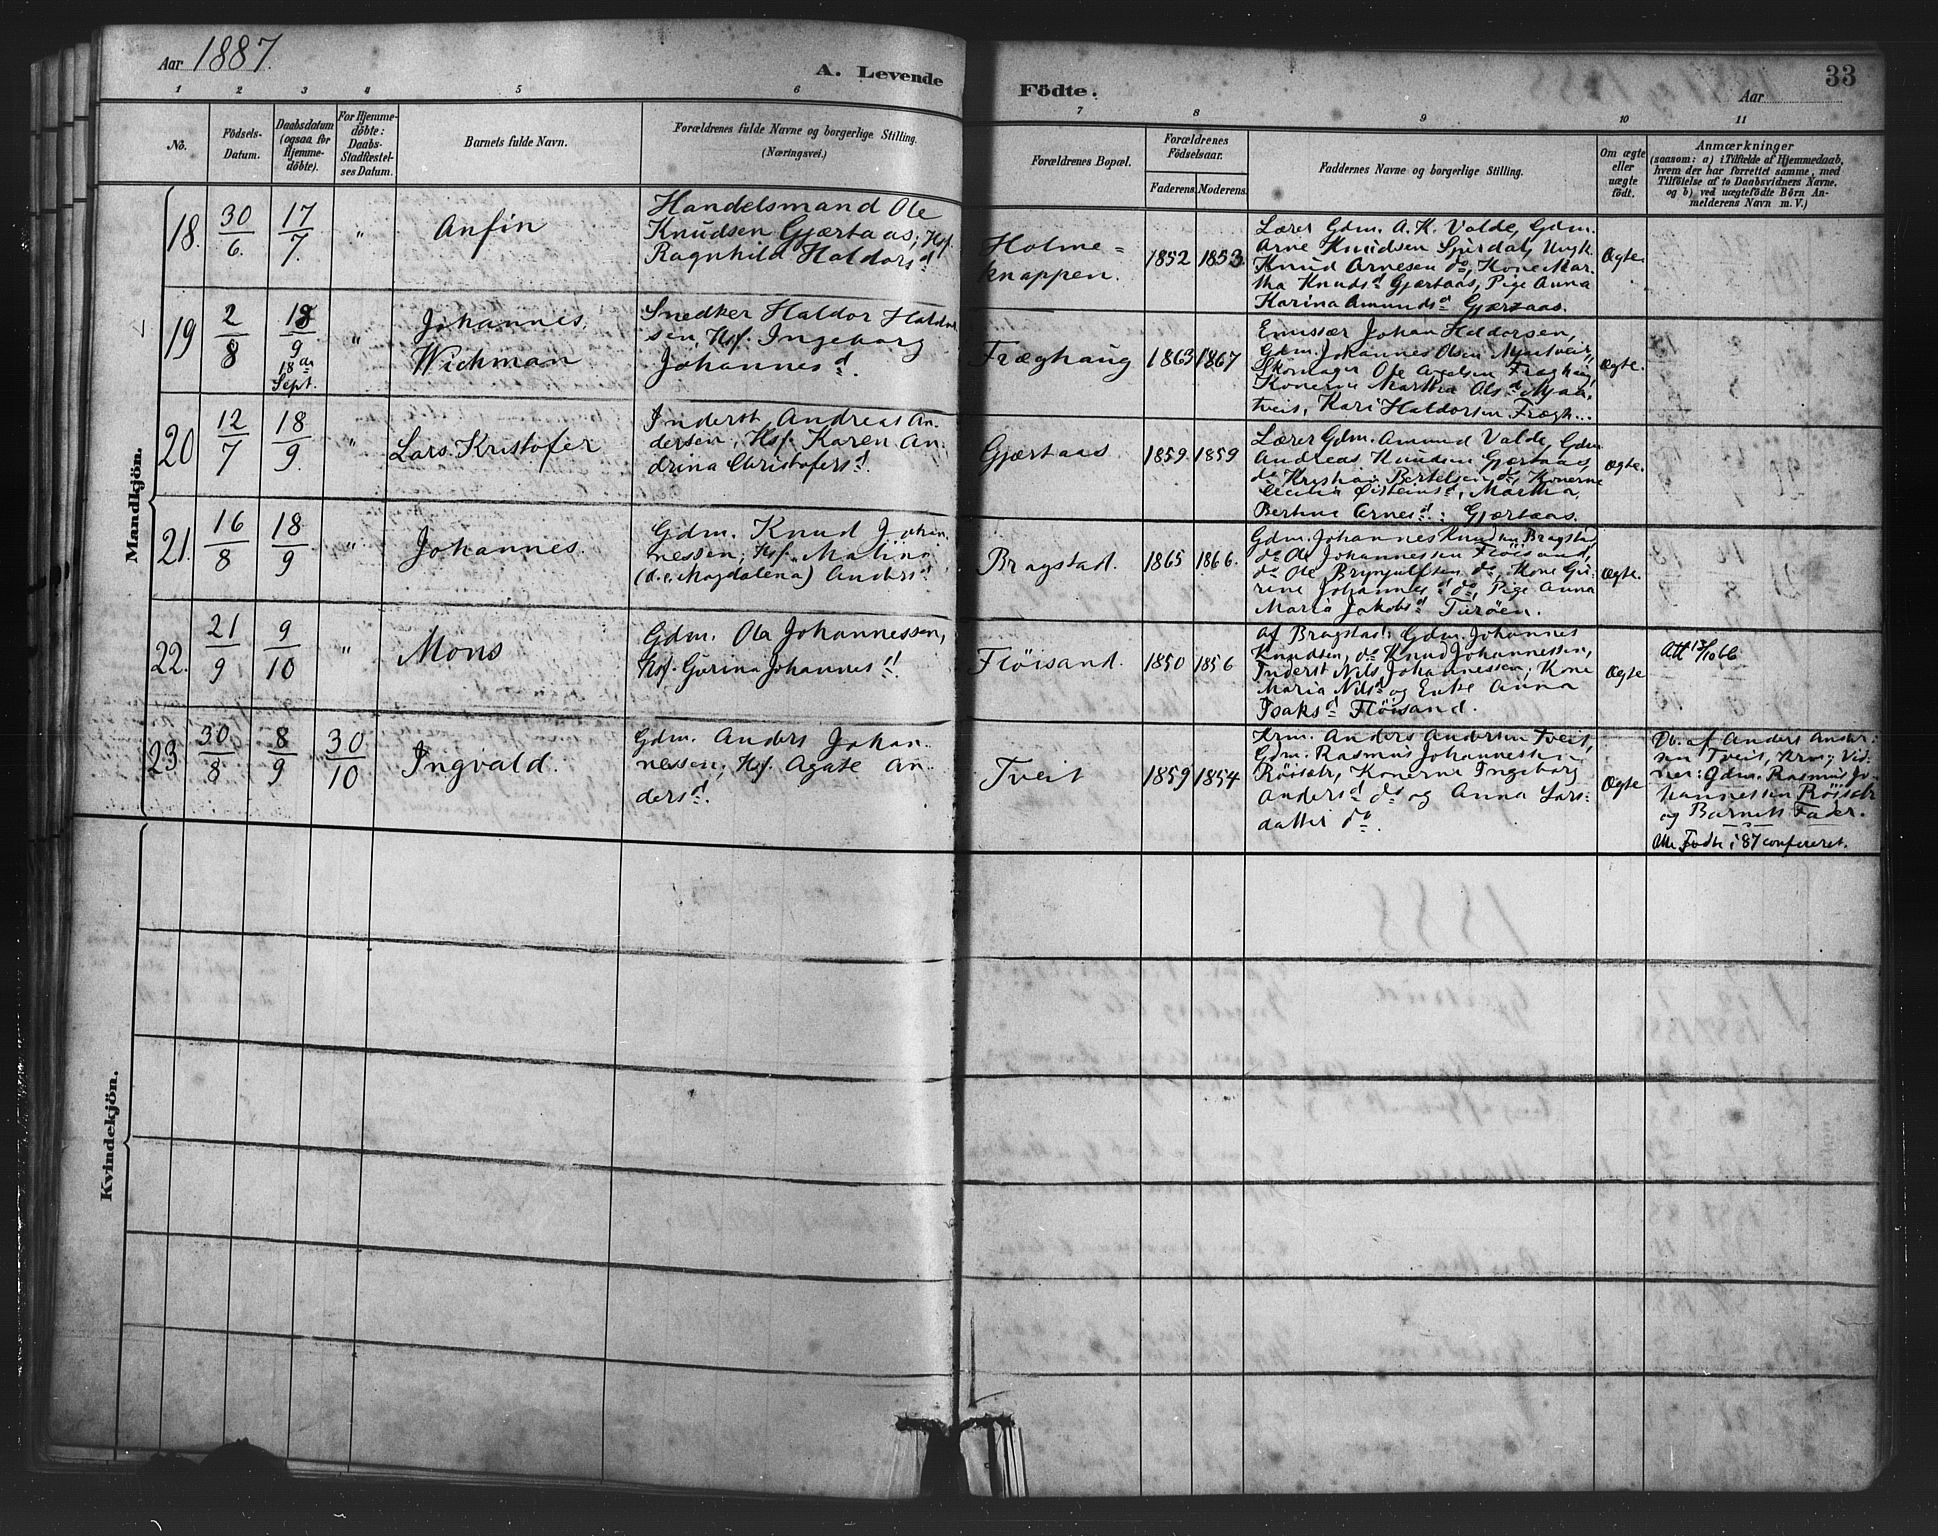 Aar 1887.
A. Levende
Födte.
33
Aar
1 2 3 4 5 6 7 8 9 10 11
No.
Födsels-
Datum.
Daabsdatum
(ogsaa for
Hjemme-
döbte).
For Hjemme-
döbte:
Daabs-
Stadfæstel-
ses Datum.
Barnets fulde Navn.
Forældrenes fulde Navne og borgerlige Stilling.
(Næringsvei.)
Forældrenes Bopæl.
Forældrenes
Födselsaar.
Faderens. Moderens.
Faddernes Navne og borgerlige Stilling.
Om ægte
eller
uægte
födt.
Anmærkninger
(saasom: a) i Tilfælde af Hjemmedaab,
hvem der har forrettet samme, med
Tilföielse af to Daabsvidners Navne.
og b) ved uægtefödte Börn An-
melderens Navn m. V.)
Mandkjön.
18. 30/6. 17/7. " Anfin
Handelsmand Ole
Knudsen Gjærtaas, Hsf.
Ragnhild Haldorsd
Holme=
knappen.
1852 1853.
Lærer Gdm. A. K. Valde, Gdm.
Arne Knudsen Spirdal, Ungk.
Knud Arnesen do, Kone Mar-
tha Knudsd Gjærtaas, Pige Anna
Karina Amundsd Gjærtaas.
Ægte.
19 2/8 18/9
18de
Sept. "
Johannes
Wichman
Snedker Haldor Haldor
sen, Hsf. Ingeborg
Johannesd.
Fræghaug 1863 1867
Emissær Johan Haldorsen,
Gdm. Johannes Olsen Mjaatveit,
Skomager Ole Fræghaug,
Konerne Martha Olsd Mjaa-
tveit, Kari Haldorsen Frægh...
Ægte.
20 12/7 18/9. " Lars Kristofer
Inderst Andreas An-
dersen, Hsf. Karen An-
drina Christofersd.
Gjærtaas 1859. 1859
Lærer Gdm. Amund Valde, Gdm
Andreas Knudsen Gjærtaas,
do Kristian Bertelsen do, Konerne
Cecilia Øisteinsd, Martha,
Bertine Arnesd: Gjærtaas.
Ægte.
21. 16/8 18/9 " Johannes.
Gdm. Knud Johan-
nessen, Hsf. Malina
(d.e. Magdalena) Andersd
Bragstad. 1865 1866.
Gdm. Johannes Knudsen Bragstad
do Ole Johannessen Flöisand,
do Ole Brynjulfsen do, Kone Gu-
rine Johannesd do, Pige Anna
Maria Jakobsd Turöen.
Ægte.
22. 21/9 9/10 " Mons
Gdm. Ole Johannessen,
Hsf. Gurina Johannesd.
Flöisand. 1850 1856
Af Bragstad: Gdm. Johannes
Knudsen, do Knud Johannessen,
Inderst Nils Johannessen, Kone
Maria Nilsd og Enke Anna
Isaksd Flöisand.
Ægte
Att 13/10 66
23. 30/8 8/9 30/10 Ingvald.
Gdm. Anders Johan-
nessen, Hsf. Agate An-
dersd.
Tveit 1859 1854
Krm. Anders Andersen Tveit,
Gdm. Rasmus Johannessen
Röisetr, Konerne Ingeborg
Andersd do og Anna Lars-
datter do.
Ægte
Db. af Anders Ander-
sen Tveit, Krm; Vid-
ner: Gdm. Rasmus Jo-
hannessen Röisetr
og Barnets Fader.
Alle Fødte i 87 confereret.
Kvindekjön.